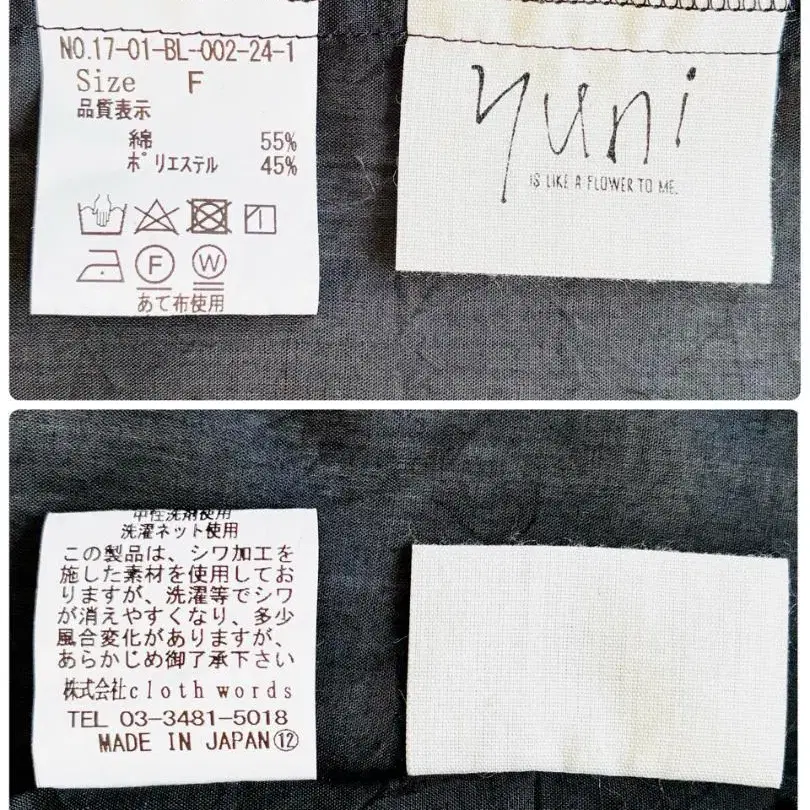 NO.17-01-BL-002-24-1
Size F
品質表示
綿 55%
ポリエステル 45%
F W
あて布使用
yuni
IS LIKE A FLOWER TO ME.
中性洗剤使用
洗濯ネット使用
この製品は、シワ加工を
施した素材を使用してお
りますが、洗濯等でシワ
が消えやすくなり、多少
風合変化がありますが、
あらかじめ御了承下さい
株式会社cloth words
TEL 03-3481-5018
MADE IN JAPAN⑫